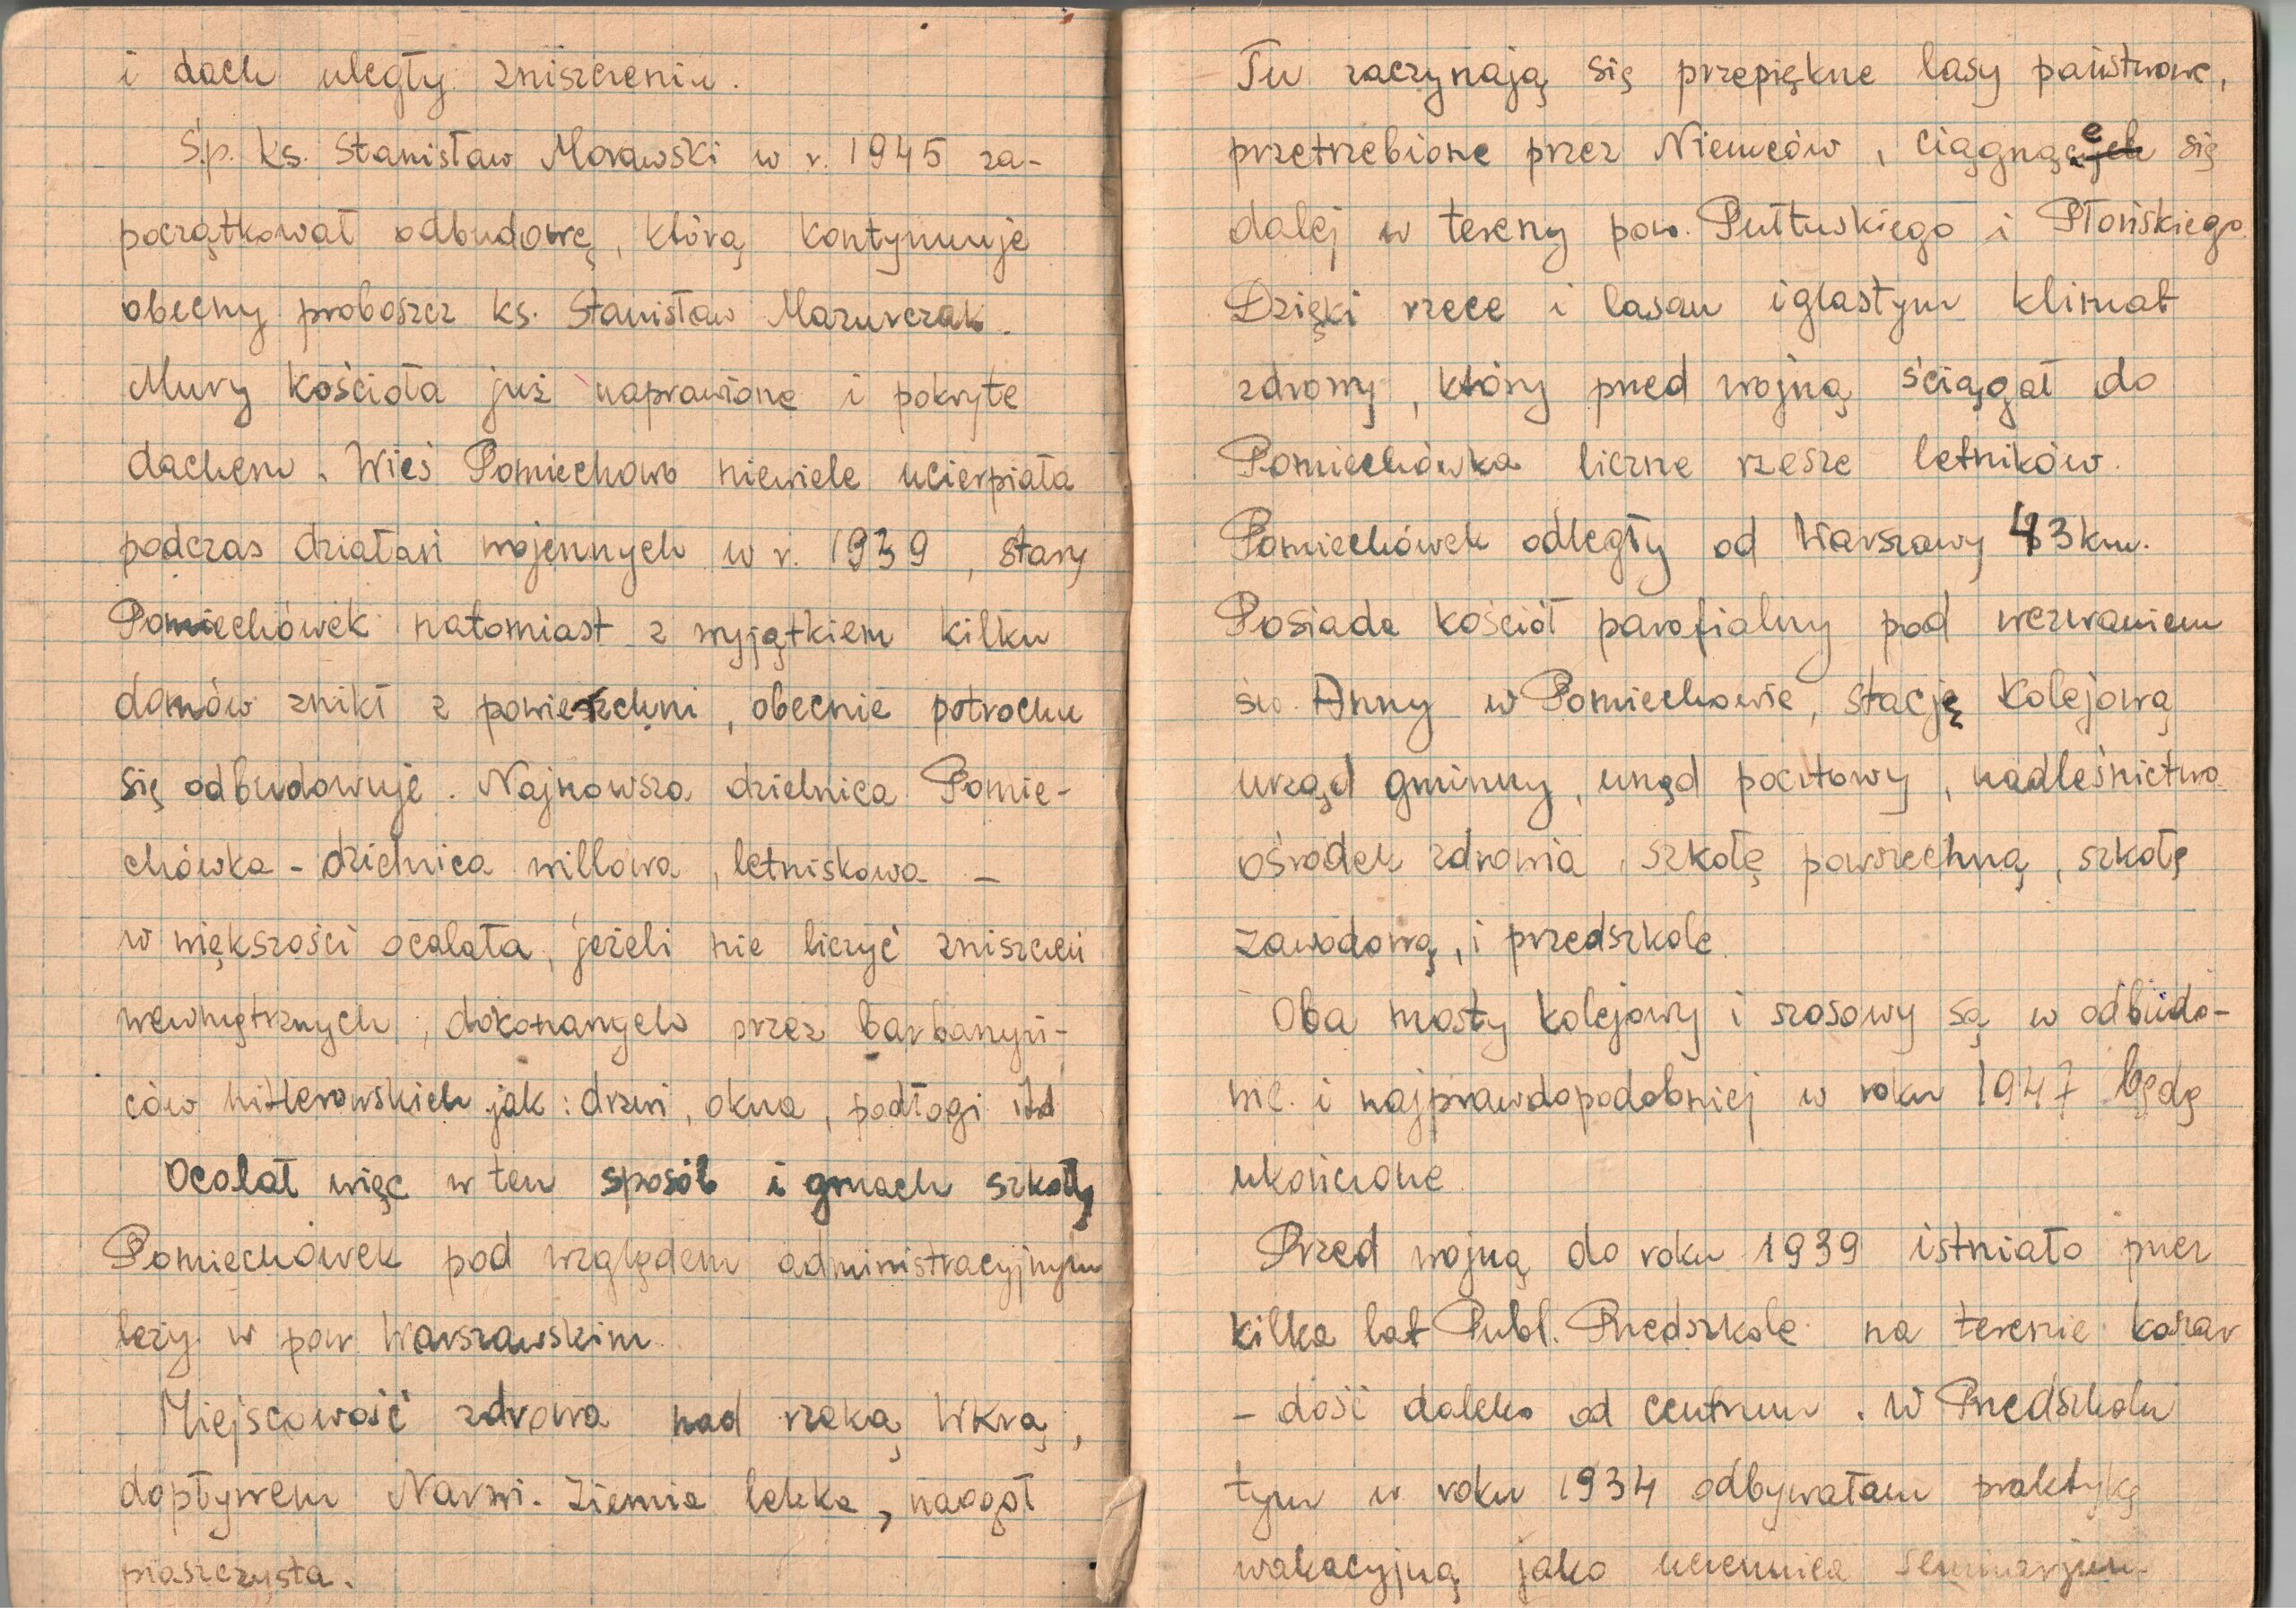 i dach uległy zniszczeniu.
Ś.p. ks. Stanisław Morawski w r. 1945 za-
początkował odbudowę, którą kontynuuje
obecny proboszcz ks. Stanisław Mazurczak.
Mury kościoła już naprawione i pokryte
dachem. Wieś Pomiechowo niewiele ucierpiała
podczas działań wojennych w r. 1939, stary
Pomiechówek natomiast z wyjątkiem kilku
domów znikł z powierzchni, obecnie potrochu
się odbudowuje. Najnowsza dzielnica Pomie-
chówka - dzielnica willowa, letniskowa -
w większości ocalała, jeżeli nie liczyć zniszczeń
wewnętrznych, dokonanych przez barbarzyń-
ców hitlerowskich jak: drzwi, okna, podłogi itd
Ocalał więc w ten sposób i gmach szkoły
Pomiechówek pod względem administracyjnym
leży w pow Warszawskim
Miejscowość zdrowa nad rzeką Wkrą,
dopływem Narwi. Ziemia lekka, naogół
piaszczysta.
Tu zaczynają się przepiękne lasy państwowe,
przetrzebione przez Niemców, ciągnące się
dalej w tereny pow. Pułtuskiego i Płońskiego.
Dzięki rzece i lasom iglastym klimat
zdrowy, który przed wojną ściągał do
Pomiechówka liczne rzesze letników.
Pomiechówek odległy od Warszawy 43 km.
Posiada kościół parafialny pod wezwaniem
św. Anny w Pomiechowie, stację kolejową
urząd gminny, urząd pocztowy, nadleśnictwo
ośrodek zdrowia, szkołę powszechną, szkołę
zawodową, i przedszkole.
Oba mosty kolejowy i szosowy są w odbudo-
wie. i najprawdopodobniej w roku 1947 będą
ukończone.
Przed wojną do roku 1939 istniało przez
kilka lat Publ. Przedszkole na terenie koszar
- dość daleko od centrum. W Przedszkolu
tym w roku 1934 odbywałam praktykę
wakacyjną jako uczennica seminarjum